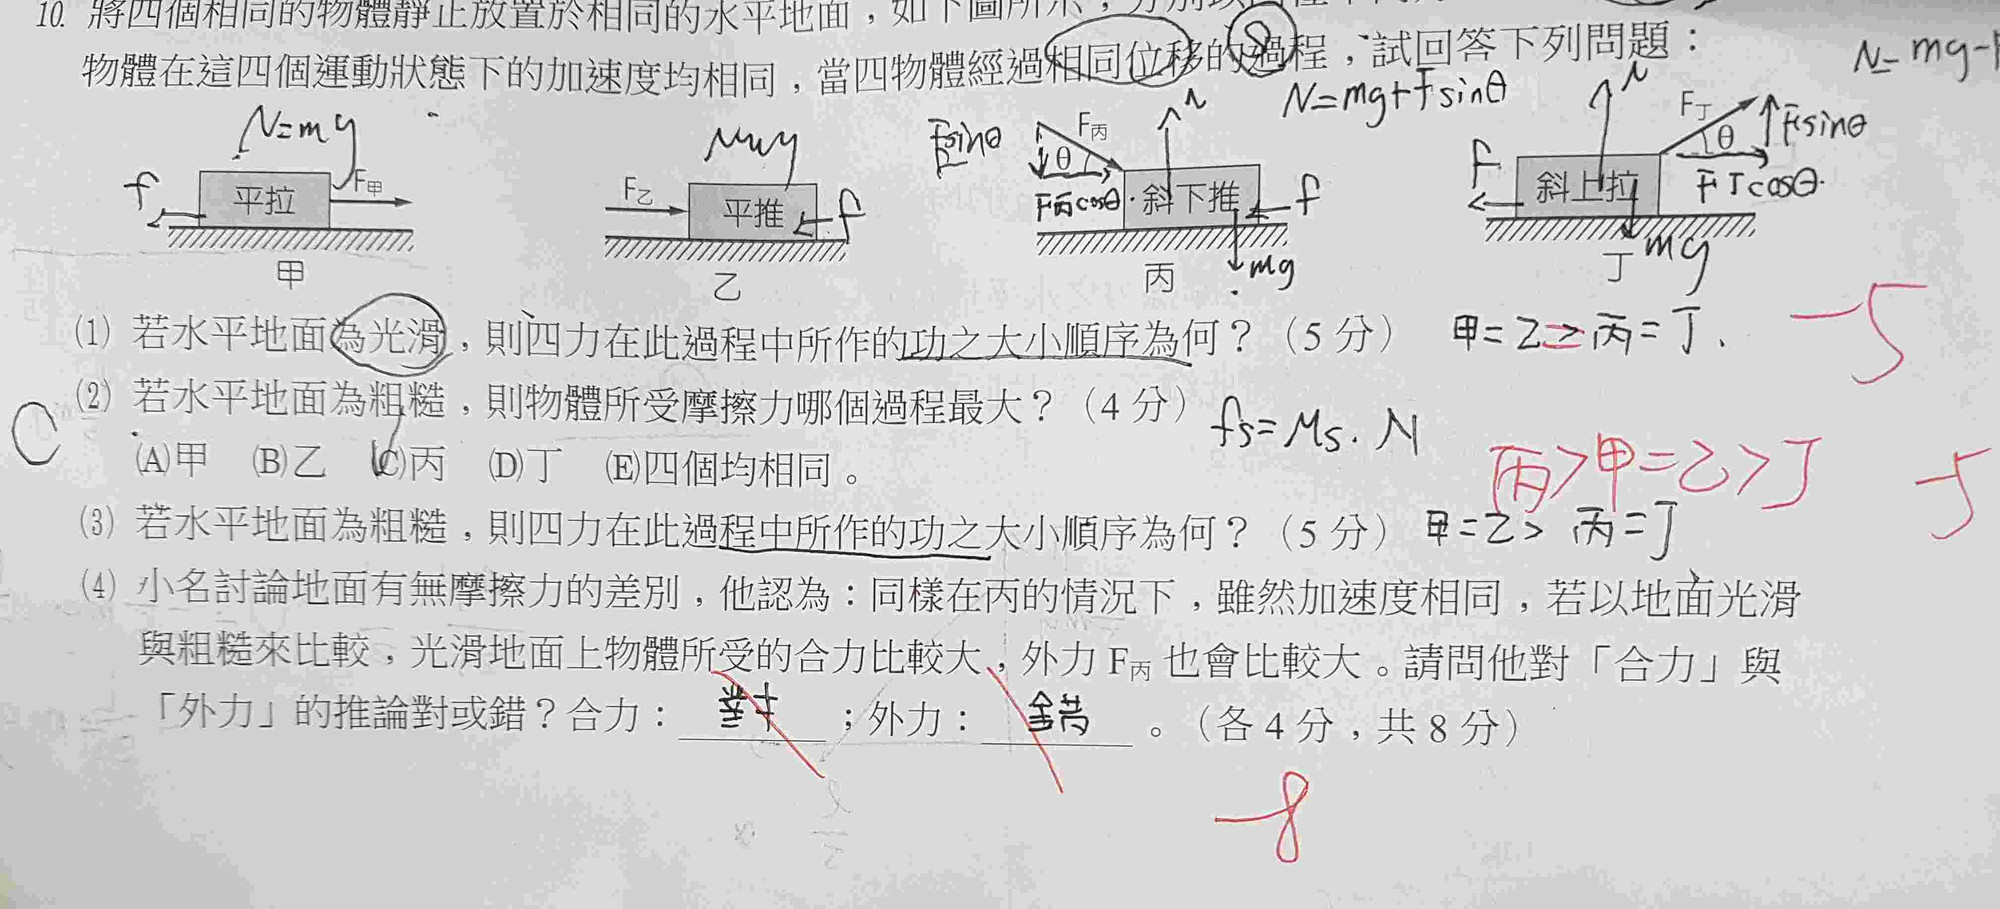 10. 將四個相同的物體靜止放置於相同的水平地面，如下圖所示，分別以
物體在這四個運動狀態下的加速度均相同，當四物體經過相同位移的過程，試回答下列問題：
N=mg-
N=mg
f
F甲
平拉
甲
N=mg
F乙
平推
f
乙
Fsinθ
F丙
θ
F丙cosθ
N
N=mg+Fsinθ
斜下推
f
mg
丙
N
F丁
θ
Fsinθ
F丁cosθ
f
斜上拉
mg
丁
(1) 若水平地面為光滑，則四力在此過程中所作的功之大小順序為何？（5 分） 甲=乙=丙=丁
-5
(2) 若水平地面為粗糙，則物體所受摩擦力哪個過程最大？（4 分） fs=Ms.N
C
(A)甲 (B)乙 (C)丙 (D)丁 (E)四個均相同。
丙>甲=乙>丁
-5
(3) 若水平地面為粗糙，則四力在此過程中所作的功之大小順序為何？（5 分） 甲=乙>丙=丁
(4) 小名討論地面有無摩擦力的差別，他認為：同樣在丙的情況下，雖然加速度相同，若以地面光滑
與粗糙來比較，光滑地面上物體所受的合力比較大，外力 F丙 也會比較大。請問他對「合力」與
「外力」的推論對或錯？合力：對；外力：錯。（各 4 分，共 8 分）
-8